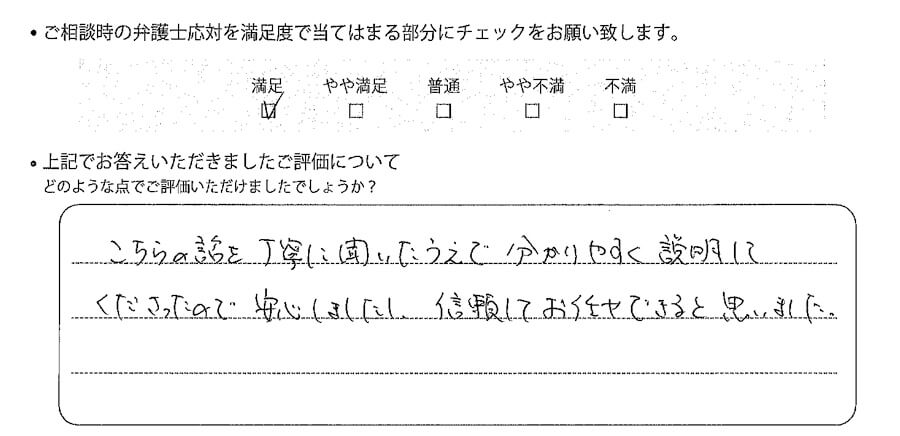 • ご相談時の弁護士応対を満足度で当てはまる部分にチェックをお願い致します。
満足 やや満足 普通 やや不満 不満
☑ □ □ □ □
• 上記でお答えいただきましたご評価について
どのような点でご評価いただけましたでしょうか？
こちらの話を丁寧に聞いたうえで分かりやすく説明して
くださったので安心しましたし、信頼してお任せできると思いました。